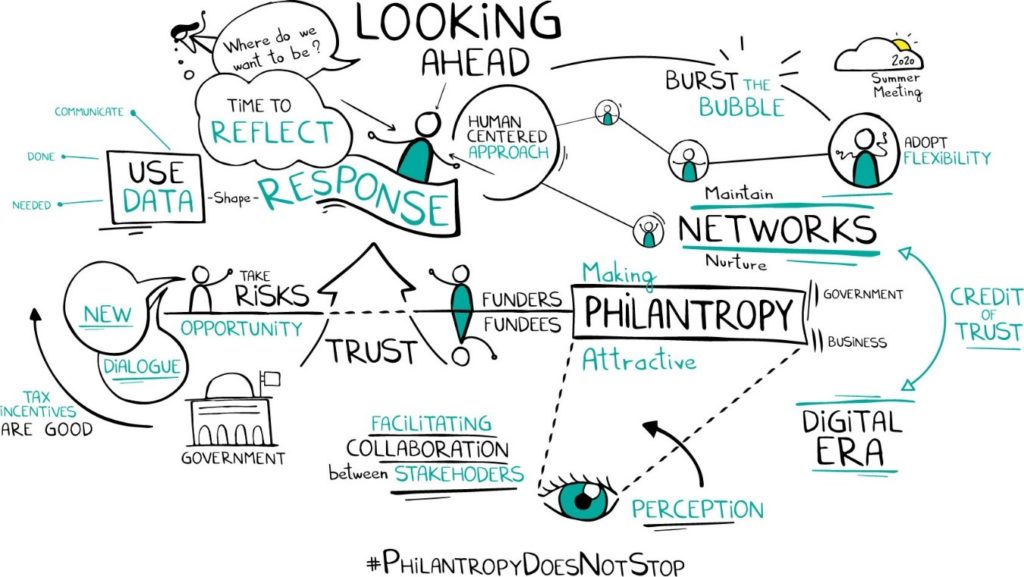 LOOKING
AHEAD
Where do we
want to be?
TIME TO
REFLECT
COMMUNICATE
DONE
NEEDED
USE
DATA
-Shape-
RESPONSE
HUMAN
CENTERED
APPROACH
BURST THE
BUBBLE
2020
Summer
Meeting
ADOPT
FLEXIBILITY
Maintain
NETWORKS
Nurture
NEW
DIALOGUE
TAKE
RISKS
OPPORTUNITY
TRUST
FUNDERS
FUNDEES
Making
PHILANTROPY
Attractive
GOVERNMENT
BUSINESS
CREDIT
OF
TRUST
DIGITAL
ERA
TAX
INCENTIVES
ARE GOOD
GOVERNMENT
FACILITATING
COLLABORATION
between STAKEHODERS
PERCEPTION
#PHILANTROPYDOESNOTSTOP